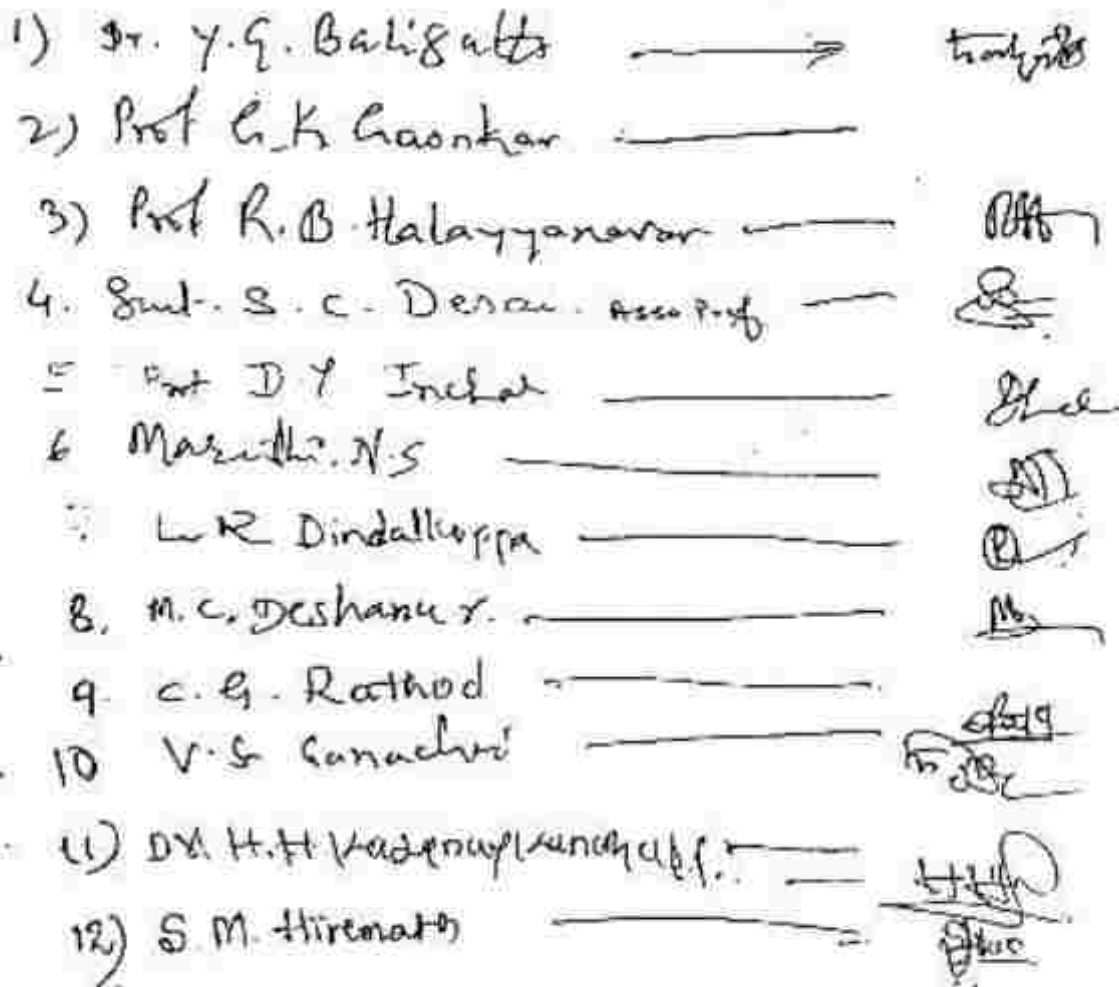 1) Dr. Y.G. Baligatti
2) Prof G.K Gaonkar
3) Prof R.B. Halayyanavar
4. Smt. S. C. Desai. Asso Prof
5 Prof D Y Inchal
6 Maruthi. N.S
7. L R Dindalkoppa
8. M.C. Deshanur.
9. C.G. Rathod
10 V.S Ganachri
11) Dr. H.H
12) S.M. Hiremath